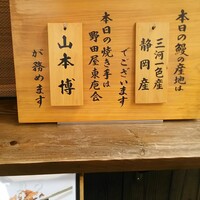 本日の鰻の産地は
三河一色産
静岡産
でございます
本日の焼き手は
野田屋東庖会
山本 博
が務めます